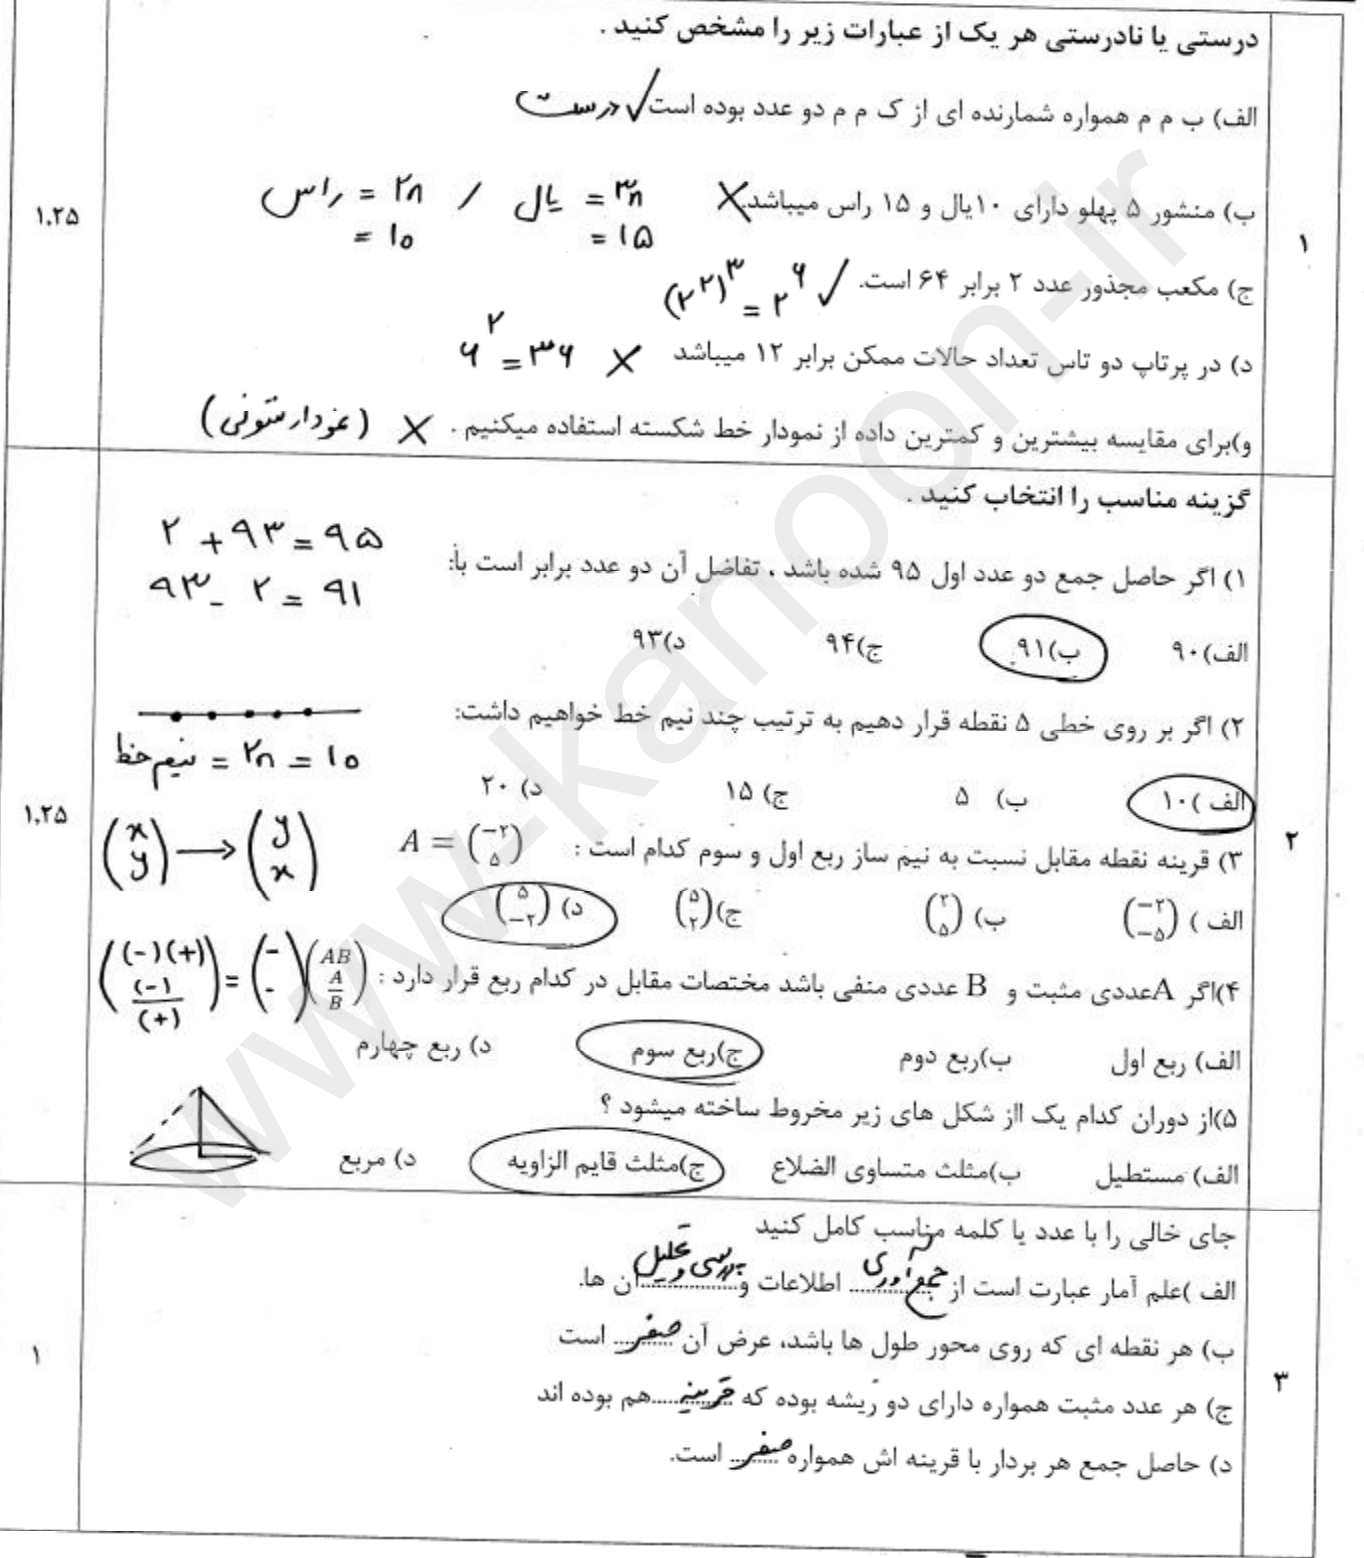 ۱
درستی یا نادرستی هر یک از عبارات زیر را مشخص کنید .
الف) ب م م همواره شمارنده ای از ک م م دو عدد بوده است ✓ درست
ب) منشور ۵ پهلو دارای ۱۰یال و ۱۵ راس میباشد. ✗ ۳n = یال / ۲n = راس
= ۱۵ = ۱۰
ج) مکعب مجذور عدد ۲ برابر ۶۴ است. ✓ (۲^۲)^۳ = ۲^۶
د) در پرتاپ دو تاس تعداد حالات ممکن برابر ۱۲ میباشد ✗ ۶^۲ = ۳۶
و)برای مقایسه بیشترین و کمترین داده از نمودار خط شکسته استفاده میکنیم . ✗ (نمودار ستونی)
۱.۲۵
۲
گزینه مناسب را انتخاب کنید .
۱) اگر حاصل جمع دو عدد اول ۹۵ شده باشد ، تفاضل آن دو عدد برابر است با:
۲ + ۹۳ = ۹۵
۹۳ - ۲ = ۹۱
الف)۹۰ ب)۹۱ ج)۹۴ د)۹۳
۲) اگر بر روی خطی ۵ نقطه قرار دهیم به ترتیب چند نیم خط خواهیم داشت:
نیم خط = ۲n = ۱۰
الف )۱۰ ب) ۵ ج) ۱۵ د) ۲۰
۳) قرینه نقطه مقابل نسبت به نیم ساز ربع اول و سوم کدام است : A = (−۲ ۵)
(x y) → (y x)
الف ) (−۲ −۵) ب) (۲ ۵) ج)(۵ ۲) د) (۵ −۲)
۴)اگر Aعددی مثبت و B عددی منفی باشد مختصات مقابل در کدام ربع قرار دارد : (AB A/B)
((-)(+) (-)/(+)) = (- -)
الف) ربع اول ب)ربع دوم ج)ربع سوم د) ربع چهارم
۵)از دوران کدام یک ااز شکل های زیر مخروط ساخته میشود ؟
الف) مستطیل ب)مثلث متساوی الضلاع ج)مثلث قایم الزاویه د) مربع
۱.۲۵
۳
جای خالی را با عدد یا کلمه مناسب کامل کنید
الف )علم آمار عبارت است از جمع آوری اطلاعات و بررسی و تحلیل آن ها.
ب) هر نقطه ای که روی محور طول ها باشد، عرض آن صفر است
ج) هر عدد مثبت همواره دارای دو ریشه بوده که قرینه هم بوده اند
د) حاصل جمع هر بردار با قرینه اش همواره صفر است.
۱
www-kanoon-ir